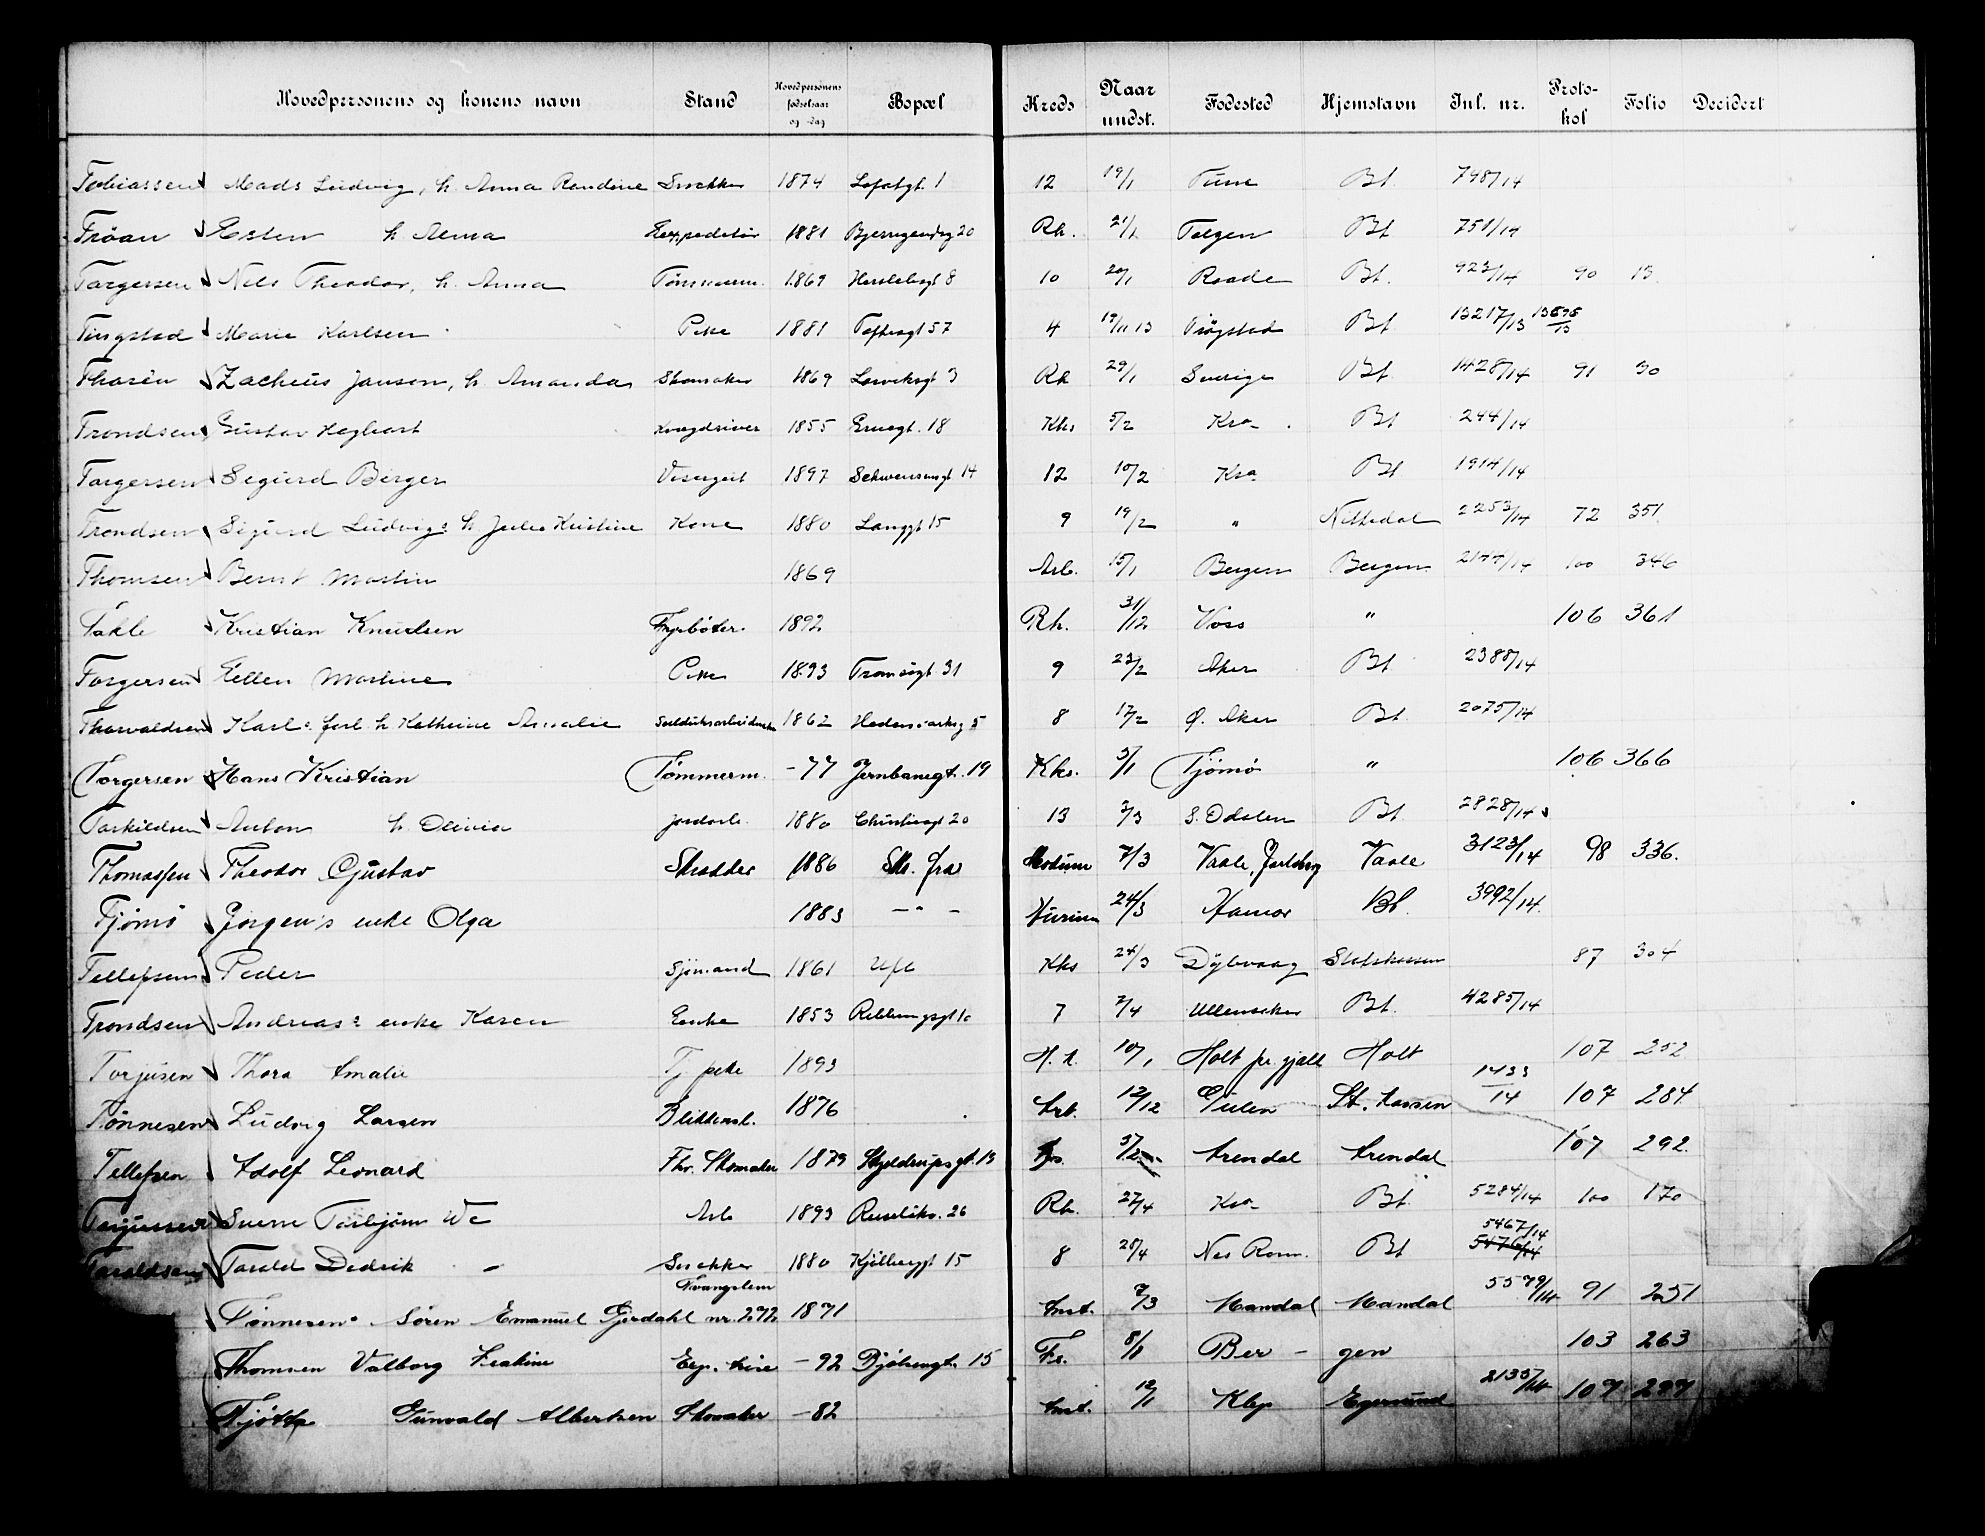 Hovedpersonens og konens navn Stand Hovedpersonens fødselsaar og -dag Bopæl Kreds Naar undst. Fødested Hjemstavn Inl. nr. Protokol Folio Decidert
Tobiassen Mads Ludvig, h. Anna Randine Snekker 1874 Lofotgt. 1 12 19/1 Tune Bt. 748/14
Trøan Esten h Alma Expeditør 1881 20 Rh. 21/1 Tolgen Bt 751/14
Torgersen Nils Theodor, h. Anna Tømmerm. 1869 Herslebsgt 8 10 20/1 Raade Bt. 923/14 90 13
Tingstad Marie Karlsen Pike 1881 Toftesgt 57 4 19/11 13 Trøgstad Bt 13217/13
Thorén Zacheus Janson, h Amanda Skomaker 1869 Larviksgt 3 Rh 29/1 Sverige Bt. 1428/14 91 30
Trondsen Gustav Hegbart 1855 18 Khs 5/2 Kra Bt 244/14
Torgersen Sigurd Birger Visergut 1897 Schwensensgt 14 12 10/2 Kra Bt 1914/14
Trondsen Sigurd Ludvigs h. Julie Kristine Kone 1880 Langgt 15 9 19/2 " Nittedal 2253/14 72 351
Thomsen Bernt Martin 1869 Arb. 15/1 Bergen Bergen 100 346
Takle Kristian Knutsen Fyrbøter 1892 Rh. 31/12 Voss " 106 361
Torgersen Ellen Martine Pike 1893 Tromsøgt 31 9 23/2 Aker Bt 2388/14
Thorvaldsen Karls forl. h Kathrine Amalie 1862 Hedemarksg 5 8 17/2 Ø. Aker Bt. 2075/14
Torgersen Hans Kristian Tømmerm. -77 Jernbanegt. 19 Khs. 5/1 Tjømø " 106 366
Torkildsen Anton h. Olivia jordarb. 1880 Christiesgt 20 13 3/3 S. Odalen Bt. 2828/14
Thomassen Theodor Gustav Skrædder 1886 Skr. fra Modum 7/3 Vaale, Jarlsberg Vaale 3123/14 98 336.
Tjømø Jørgen's enke Olga 1883 — " — Hurum 24/3 Hamar Bt. 3992/14
Tellefsen Peder Sjømand 1861 Ufb Khs 24/3 Dybvaag Statskassen 87 304
Trondsen Andreas's enke Karen Enke 1853 7 2/4 Ullensaker Bt. 4285/14
Torjusen Thora Amalie Tj pike 1893 10/1 Holt pr. gjall Holt 107 252
Tønnesen Ludvig Larsen Blikkensl. 1876 Arb. 12/12 Gulen St. kassen 1433/14 107 284
Tellefsen Adolf Leonard Fhv. Skomaker 1879 Skjeldrupsgt. 13 Fs. 5/2 Arendal Arendal 107 292
Torjussen Sverre Torbjørn Arb 1893 Ruseløkv. 26 Rh. 27/4 Kra Bt. 5284/14 100 170
Taraldsen Tarald Dedrik — Snekker 1880 Kjølberggt 15 8 28/4 Nes Rom. Bt 5467/14 5476/14
Tønnesen Søren Emanuel Gjerdahl nr. 2972 Tvangslem 1871 Anst. 7/3 Mandal Mandal 5579/14 91 251
Thomsen Valborg Exp. trise -92 Bjølsengt. 15 Fs. 8/1 Ber - gen 103 263
Tjøtta Gunvald Albertsen Skomaker -82 Anst. 12/1 Klep Egersund 2135/14 107 297